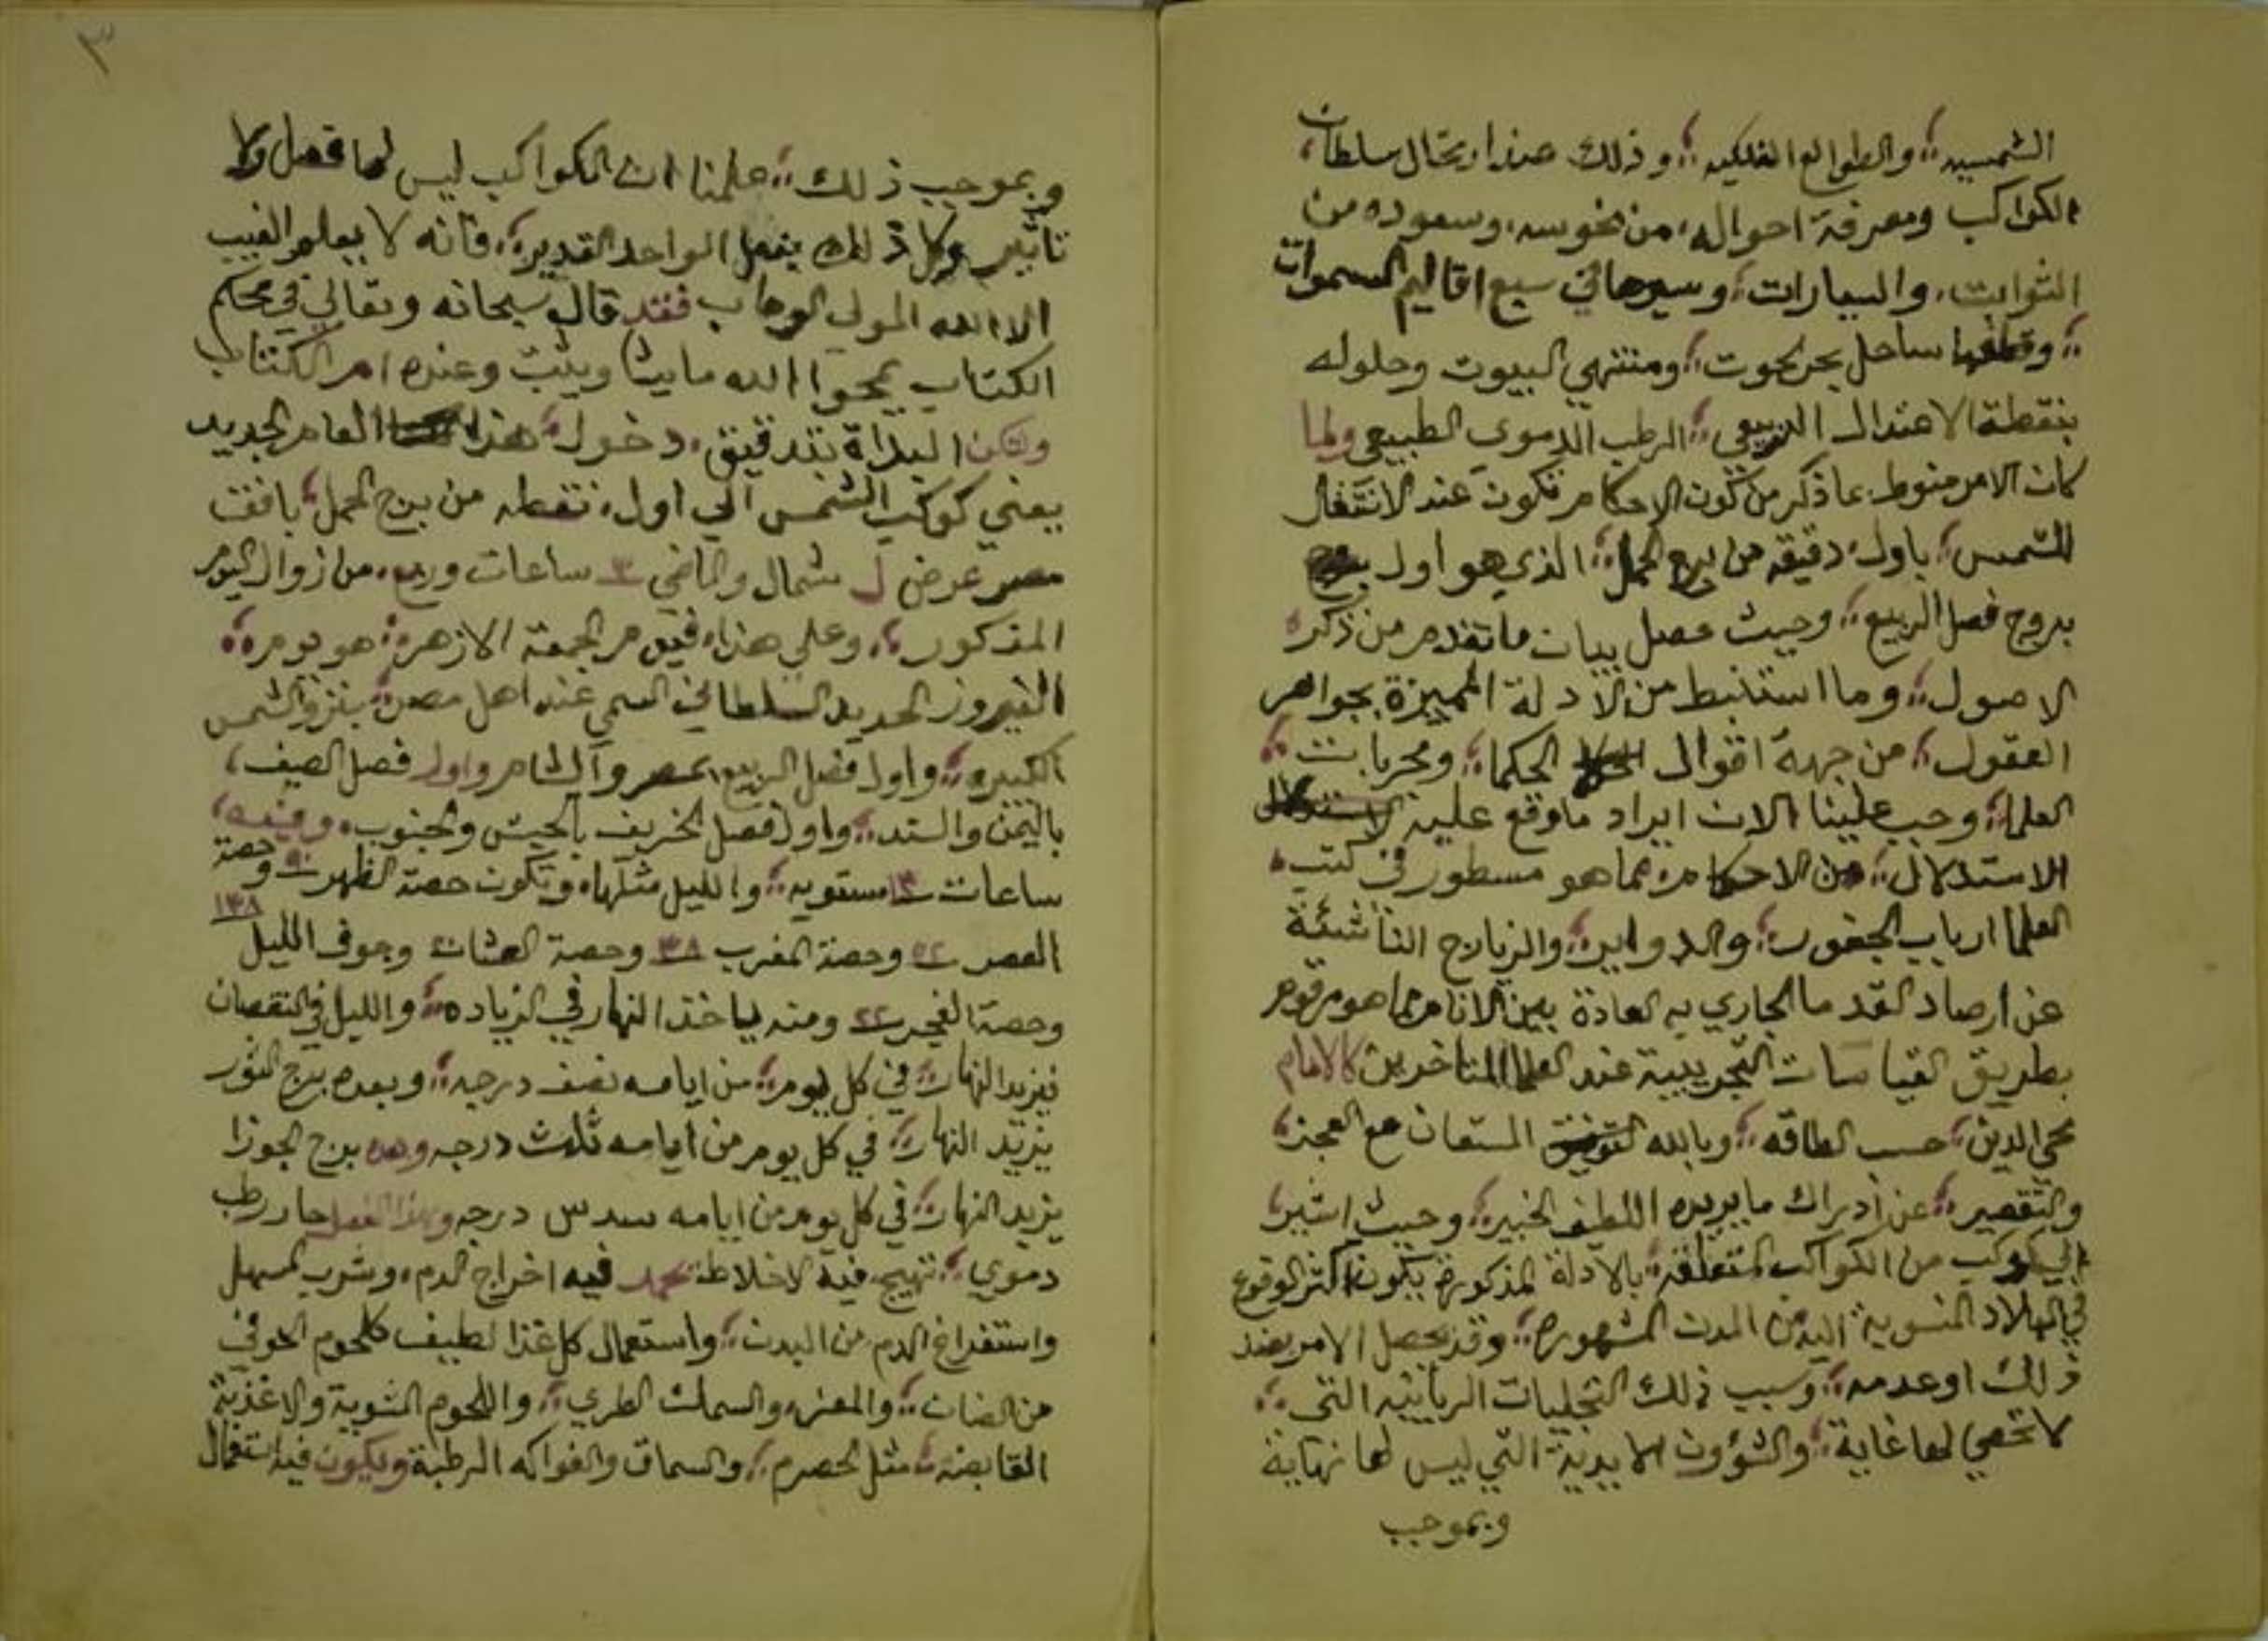 الشمسيه والطوالع الفلكيه وذلك عند ارتحال سلطان
الكواكب ومعرفة احواله من نحوسه وسعوده من
الثوابت والسيارات وسيرها في سبع اقاليم السموات
ساحل بحر الحوت ومنتهي البيوت وحلوله
بنقطة الاعتدال الربيعي الرطب الدموي الطبيعي ولما
كان الامر منوط بما ذكر من كون الاحكام تكون عند الانتقال
الشمس باول دقيقه من برج الحمل الذي هو اول
بروج فصل الربيع وحيث حصل بيان ما تقدم من ذكر
الاصول وما استنبط من الادلة المميزة بجواهر
العقول من جهة اقوال الحكما ومجربات
العلما وجب علينا الان ايراد ما وقع عليه
الاستدلال من الاحكام مما هو مسطور في كتب
العلما ارباب الجفور والدواير والزيارج الناشئة
عن ارصاد القدما الجاري به العادة بين الانام مما هو مرقوم
بطريق القياسات التجريبية عند العلما المتاخرين كالامام
محي الدين حسب الطاقه وبالله المستعان مع العجز
والتقصير عن ادراك ما يريده اللطيف الخبير وحيث اشير
الي كوكب من الكواكب المتعلقه بالادلة المذكورة يكون اكثر الوقوع
في البلاد المنسوبة اليه من المدن المشهوره وقد يحصل الامر بضد
ذلك او عدمه وسبب ذلك التجليات الربانيه التي
لا تحصي لها غاية والشؤون الابدية التي ليس لها نهاية
وبموجب
٣
وبموجب ذلك علمنا ان الكواكب ليس لها فعل ولا
تاثير وكل ذلك بفعل الواحد القدير فانه لا يعلم الغيب
الا الله المولي الوهاب فقد قال سبحانه وتعالي في محكم
الكتاب يمحوا الله ما يشا ويثبت وعنده ام الكتاب
ولكن البداة بتدقيق دخول هذا العام الجديد
يعني كوكب الشمس الي اول نقطه من برج الحمل بافق
مصر عرض ل شمال والماضي ٣ ساعات وربع من زوال اليوم
المذكور وعلي هذا فيوم الجمعة الازهر هو يوم
النيروز الجديد السلطاني المسمي عند اهل مصر بنزو الشمس
الكبيره واول فصل الربيع بمصر والشام واول فصل الصيف
باليمن والسند واول فصل الخريف بالحبش والجنوب وفيه
ساعات مستويه والليل مثلها وتكون حصة الظهر وحصة
العصر ٥٢ وحصة المغرب ٣٨ وحصة العشا وجوف الليل ١٣٨
وحصة الفجر ٢٢ ومنه ياخذ النهار في الزياده والليل في النقصان
فيزيد النهار في كل يوم من ايامه نصف درجه وبعده برج الثور
يزيد النهار في كل يوم من ايامه ثلث درجه برج الجوزا
يزيد النهار في كل يوم من ايامه سدس درجه وهذا الفصل حار رطب
دموي تهيج فيه الاخلاط يحمد فيه اخراج الدم وشرب المسهل
واستفراغ الدم من البدن واستعمال كل غذا لطيف كلحوم الحوفي
من الضان والمعز والسمك الطري واللحوم المشوية والاغذية
القابضه مثل الحصرم والسماق والفواكه الرطبة ويكون فيه استعمال